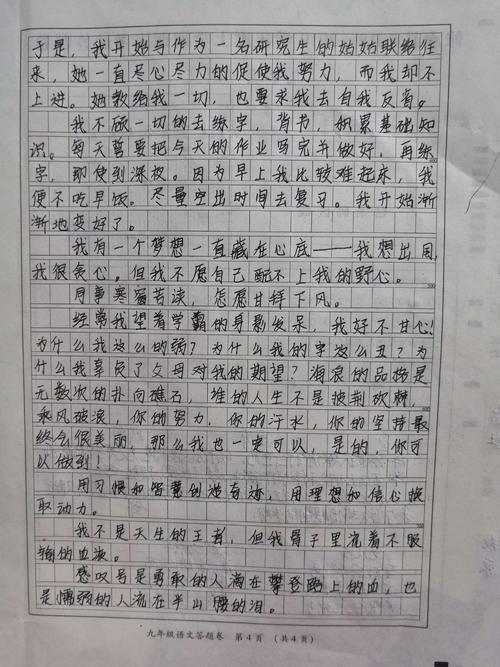 于是，我开始与作为一名研究生的姑姑联络往
来，她一直尽心尽力的促使我努力，而我却不
上进。她教给我一切，也要求我去自我反省。
我不顾一切的去练字，背书，积累基础知
识。每天晚要把当天的作业写完并做好，再练
字，即使到深夜。因为早上我比较难起来，我
便不吃早饭。尽量空出时间去复习。我开始渐
渐地变好了。
我有一个梦想一直藏在心底——我想出国，
我很贪心。但我不愿自己配不上我的野心。
用事寒窗苦读，怎愿甘拜下风。
经常我望着学霸的身影发呆，我好不甘心！
为什么我这么的弱？为什么我的字这么丑？为
什么我辜负了父母对我的期望？海浪的品格是
无数次的扑向礁石，谁的人生不是披荆砍棘，
乘风破浪，你的努力，你的汗水，你的坚持最
终会很美丽，那么我也一定可以，是的，你可
以做到！
用习惯和智慧创造奇迹，用理想和信心换
取动力。
我不是天生的王者，但我骨子里流着不服
输的血液。
感叹号是勇敢的人滴在攀登路上的血，也
是懦弱的人流在半山腰的泪。
九年级语文答题卷 第4页 （共4页）